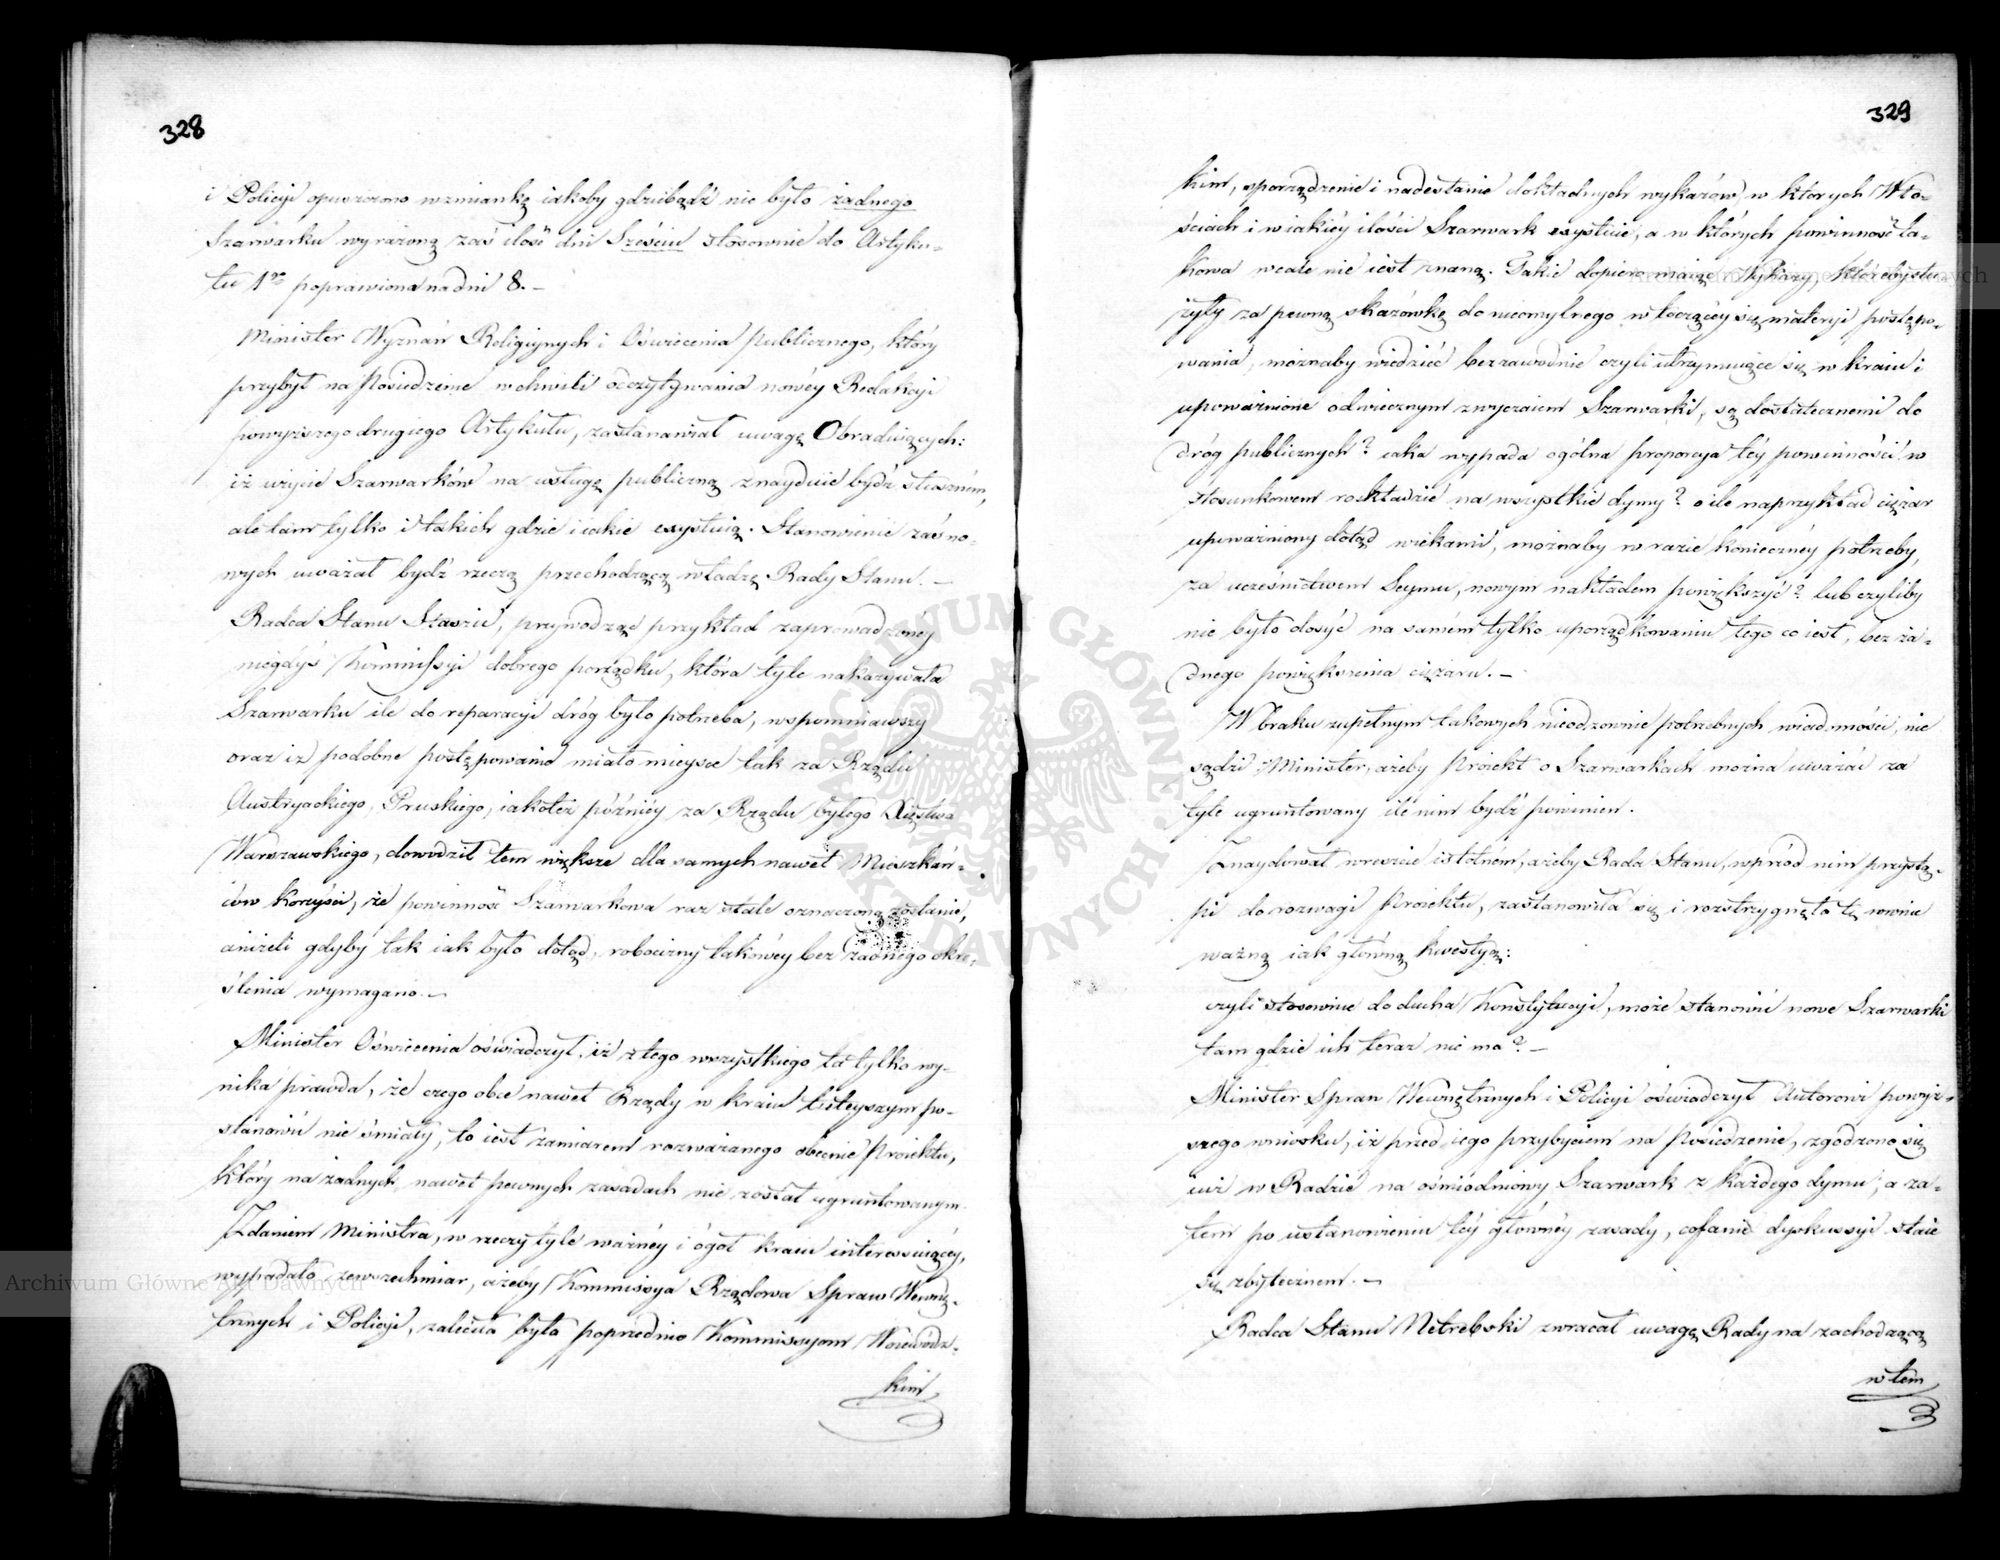 328
i Policyi opuszczono wzmiankę iakoby gdziebądź nie było żadnego
Szarwarku wyrażoną zaś ilość dni Sześciu stosownie do Artyku-
łu 1go poprawiona na dni 8. —
Minister Wyznań Religiynych i Oświecenia publicznego, który
przybył na Posiedzenie w chwili odczytywania nowéy Redakcyi
powyższego drugiego Artykułu, zastanawiał uwagę Obraduiących:
iż użycie Szarwarków na usługę publiczną znayduie bydź słuszném,
ale tam tylko i takich gdzie i iakie exystuią. Stanowienie zaś no-
wych uważał bydź rzeczą przechodzącą władzę Rady Stanu. —
Radca Stanu Staszic, przywodząc przykład zaprowadzonéy
niegdyś Kommissyi dobrego porządku, która tyle nakazywała
Szarwarku ile do reparacyi dróg było potrzeba, wspomniawszy
oraz iż podobne postępowanie miało mieysce tak za Rządu
Austryackiego, Pruskiego, iakoteż późniéy za Rządu byłego Xięstwa
Warszawskiego, dowodził tem większe dla samych nawet Mieszkań-
ców korzyści, że powinność Szarwarkowa raz stale oznaczoną zostanie,
aniżeli gdyby tak iak było dotąd, robocizny takowéy bez żadnego okre-
ślenia wymagano. —
Minister Oświecenia oświadczył, iż z tego wszystkiego ta tylko wy-
nika prawda, że czego obce nawet Rządy w kraiu tuteyszym po-
stanowić nie śmiały, to iest zamiarem rozważanego obecnie Proiektu,
który na żadnych nawet pewnych zasadach nie został ugruntowanym.
Zdaniem Ministra, w rzeczy tyle ważnéy i ogół kraiu interessuiącéy,
wypadało zewszechmiar, ażeby Kommissya Rządowa Spraw Wewnę-
trznych i Policyi, zaleciła była poprzednio Kommissyom Woiewódz-
kim
329
kim, sporządzenie i nadesłanie dokładnych wykazów, w których Wło-
ściach i w iakiéy ilości Szarwark exystuie, a w których powinność ta-
kowa wcale nie iest znaną. Takie dopiero maiąc Wykazy, któreby słu-
żyły za pewną skazówkę do nieomylnego w toczącéy się materyi postępo-
wania, możnaby wiedzieć bezzawodnie czyli utrzymuiące się w kraiu i
upoważnione odwiecznym zwyczaiem Szarwarki, są dostatecznemi do
dróg publicznych? iaka wypada ogólna proporcya téy powinności w
stosunkowem rozkładzie na wszystkie dymy? o ile naprzykład ciężar
upoważniony dotąd wiekami, możnaby w razie koniecznéy potrzeby,
za uczestnictwem Seymu, nowym nakładem powiększyć? lub czyliby
nie było dosyć na samém tylko uporządkowaniu tego co iest, bez ża-
dnego powiększenia ciężaru. —
W braku zupełnym takowych nieodzownie potrzebnych wiadomości, nie
sądzi Minister, ażeby Proiekt o Szarwarkach można uważać za
tyle ugruntowany ile nim bydź powinien.
Znaydował wreszcie istotném, ażeby Rada Stanu, wprzód nim przystą-
pi do rozwagi Proiektu, zastanowiła się i rozstrzygnęła tę równie
ważną iak główną kwestyą:
czyli stosownie do ducha Konstytucyi, może stanowić nowe Szarwarki
tam gdzie ich teraz nie ma? —
Minister Spraw Wewnętrznych i Policyi oświadczył Autorowi powyż-
szego wniosku, iż przed iego przybyciem na Posiedzenie, zgodzono się
iuż w Radzie na ośmiodniowy Szarwark z każdego dymu, a za-
tem po ustanowieniu téy głównéy zasady, cofanie dyskussyi staie
się zbytecznem. —
Radca Stanu Netrebski zwracał uwagę Rady na zachodzącą
w tem
ARCHIWUM GŁÓWNE AKT DAWNYCH
Archiwum Główne Akt Dawnych
Archiwum Główne Akt Dawnych